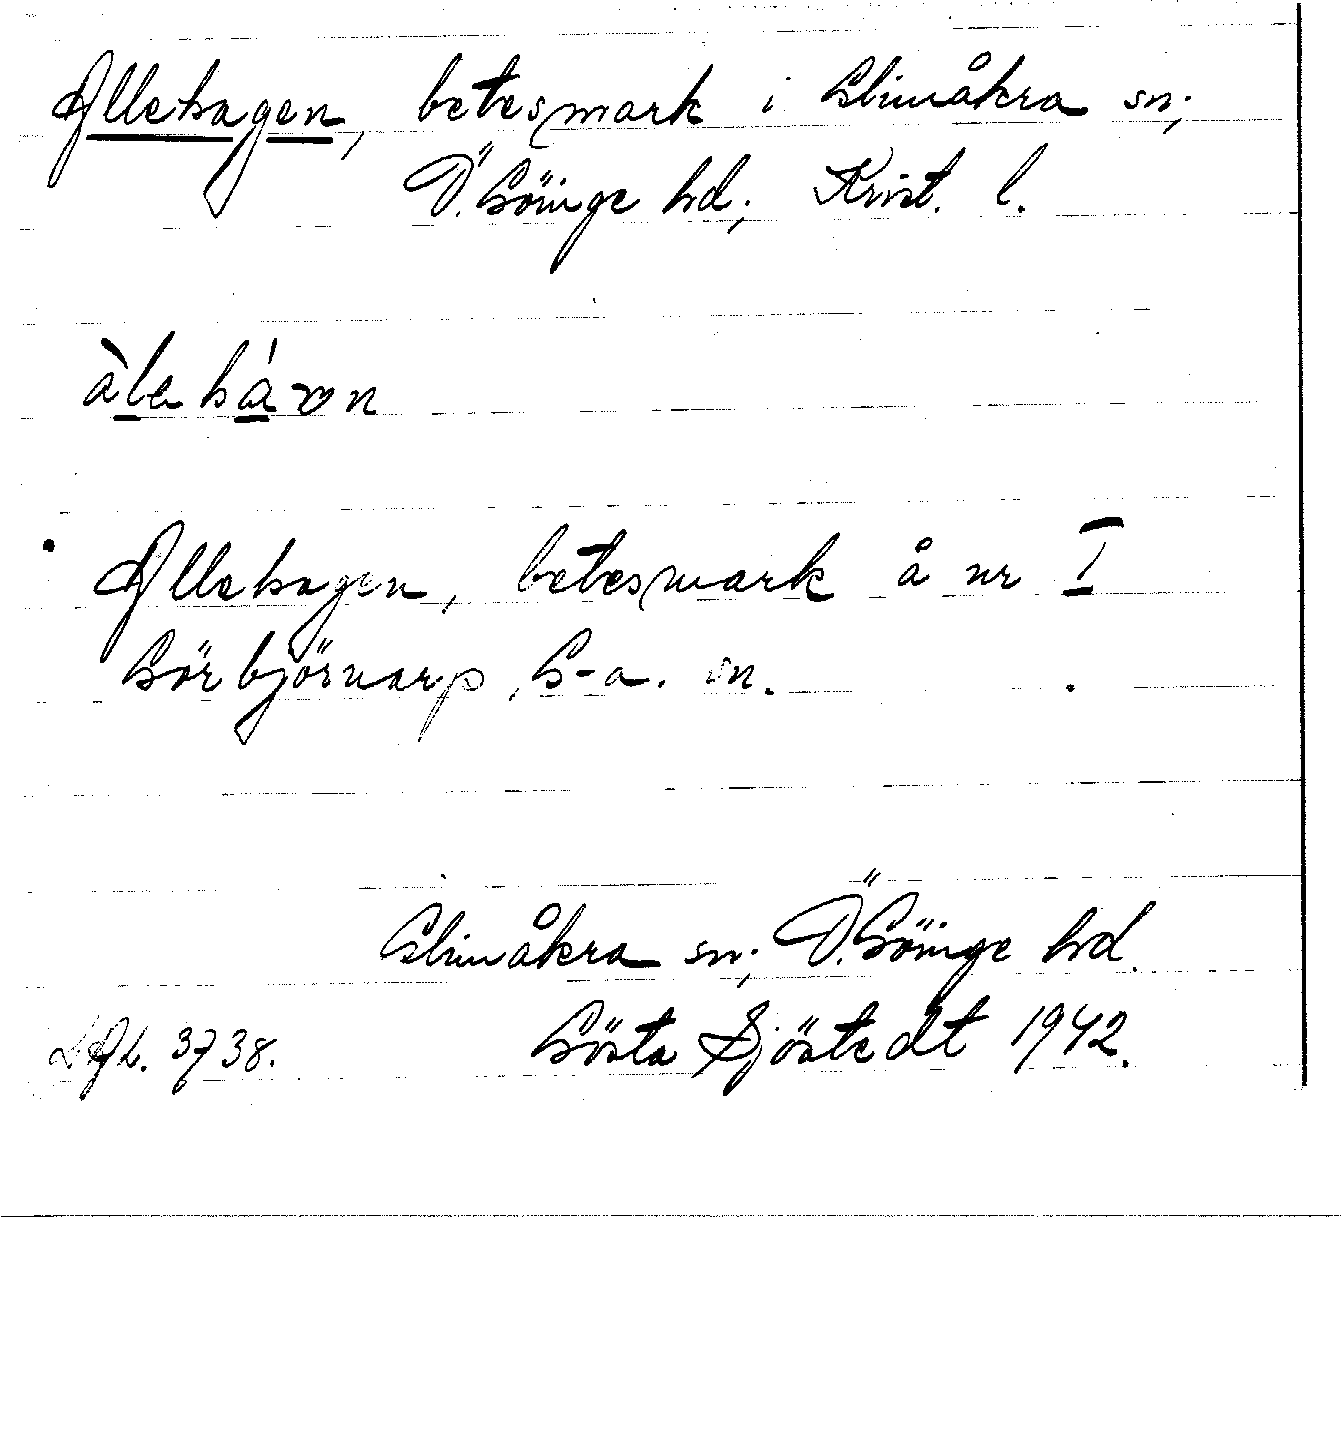 Allehagen, betesmark i Glimåkra sn;
Ö. Göinge hd; Krist. l.
Allehagen, betesmark å nr I
Görbjörnarp, G-a. sn.
Glimåkra sn; Ö. Göinge hd.
LAL. 3738. Gösta Sjöstedt 1942.